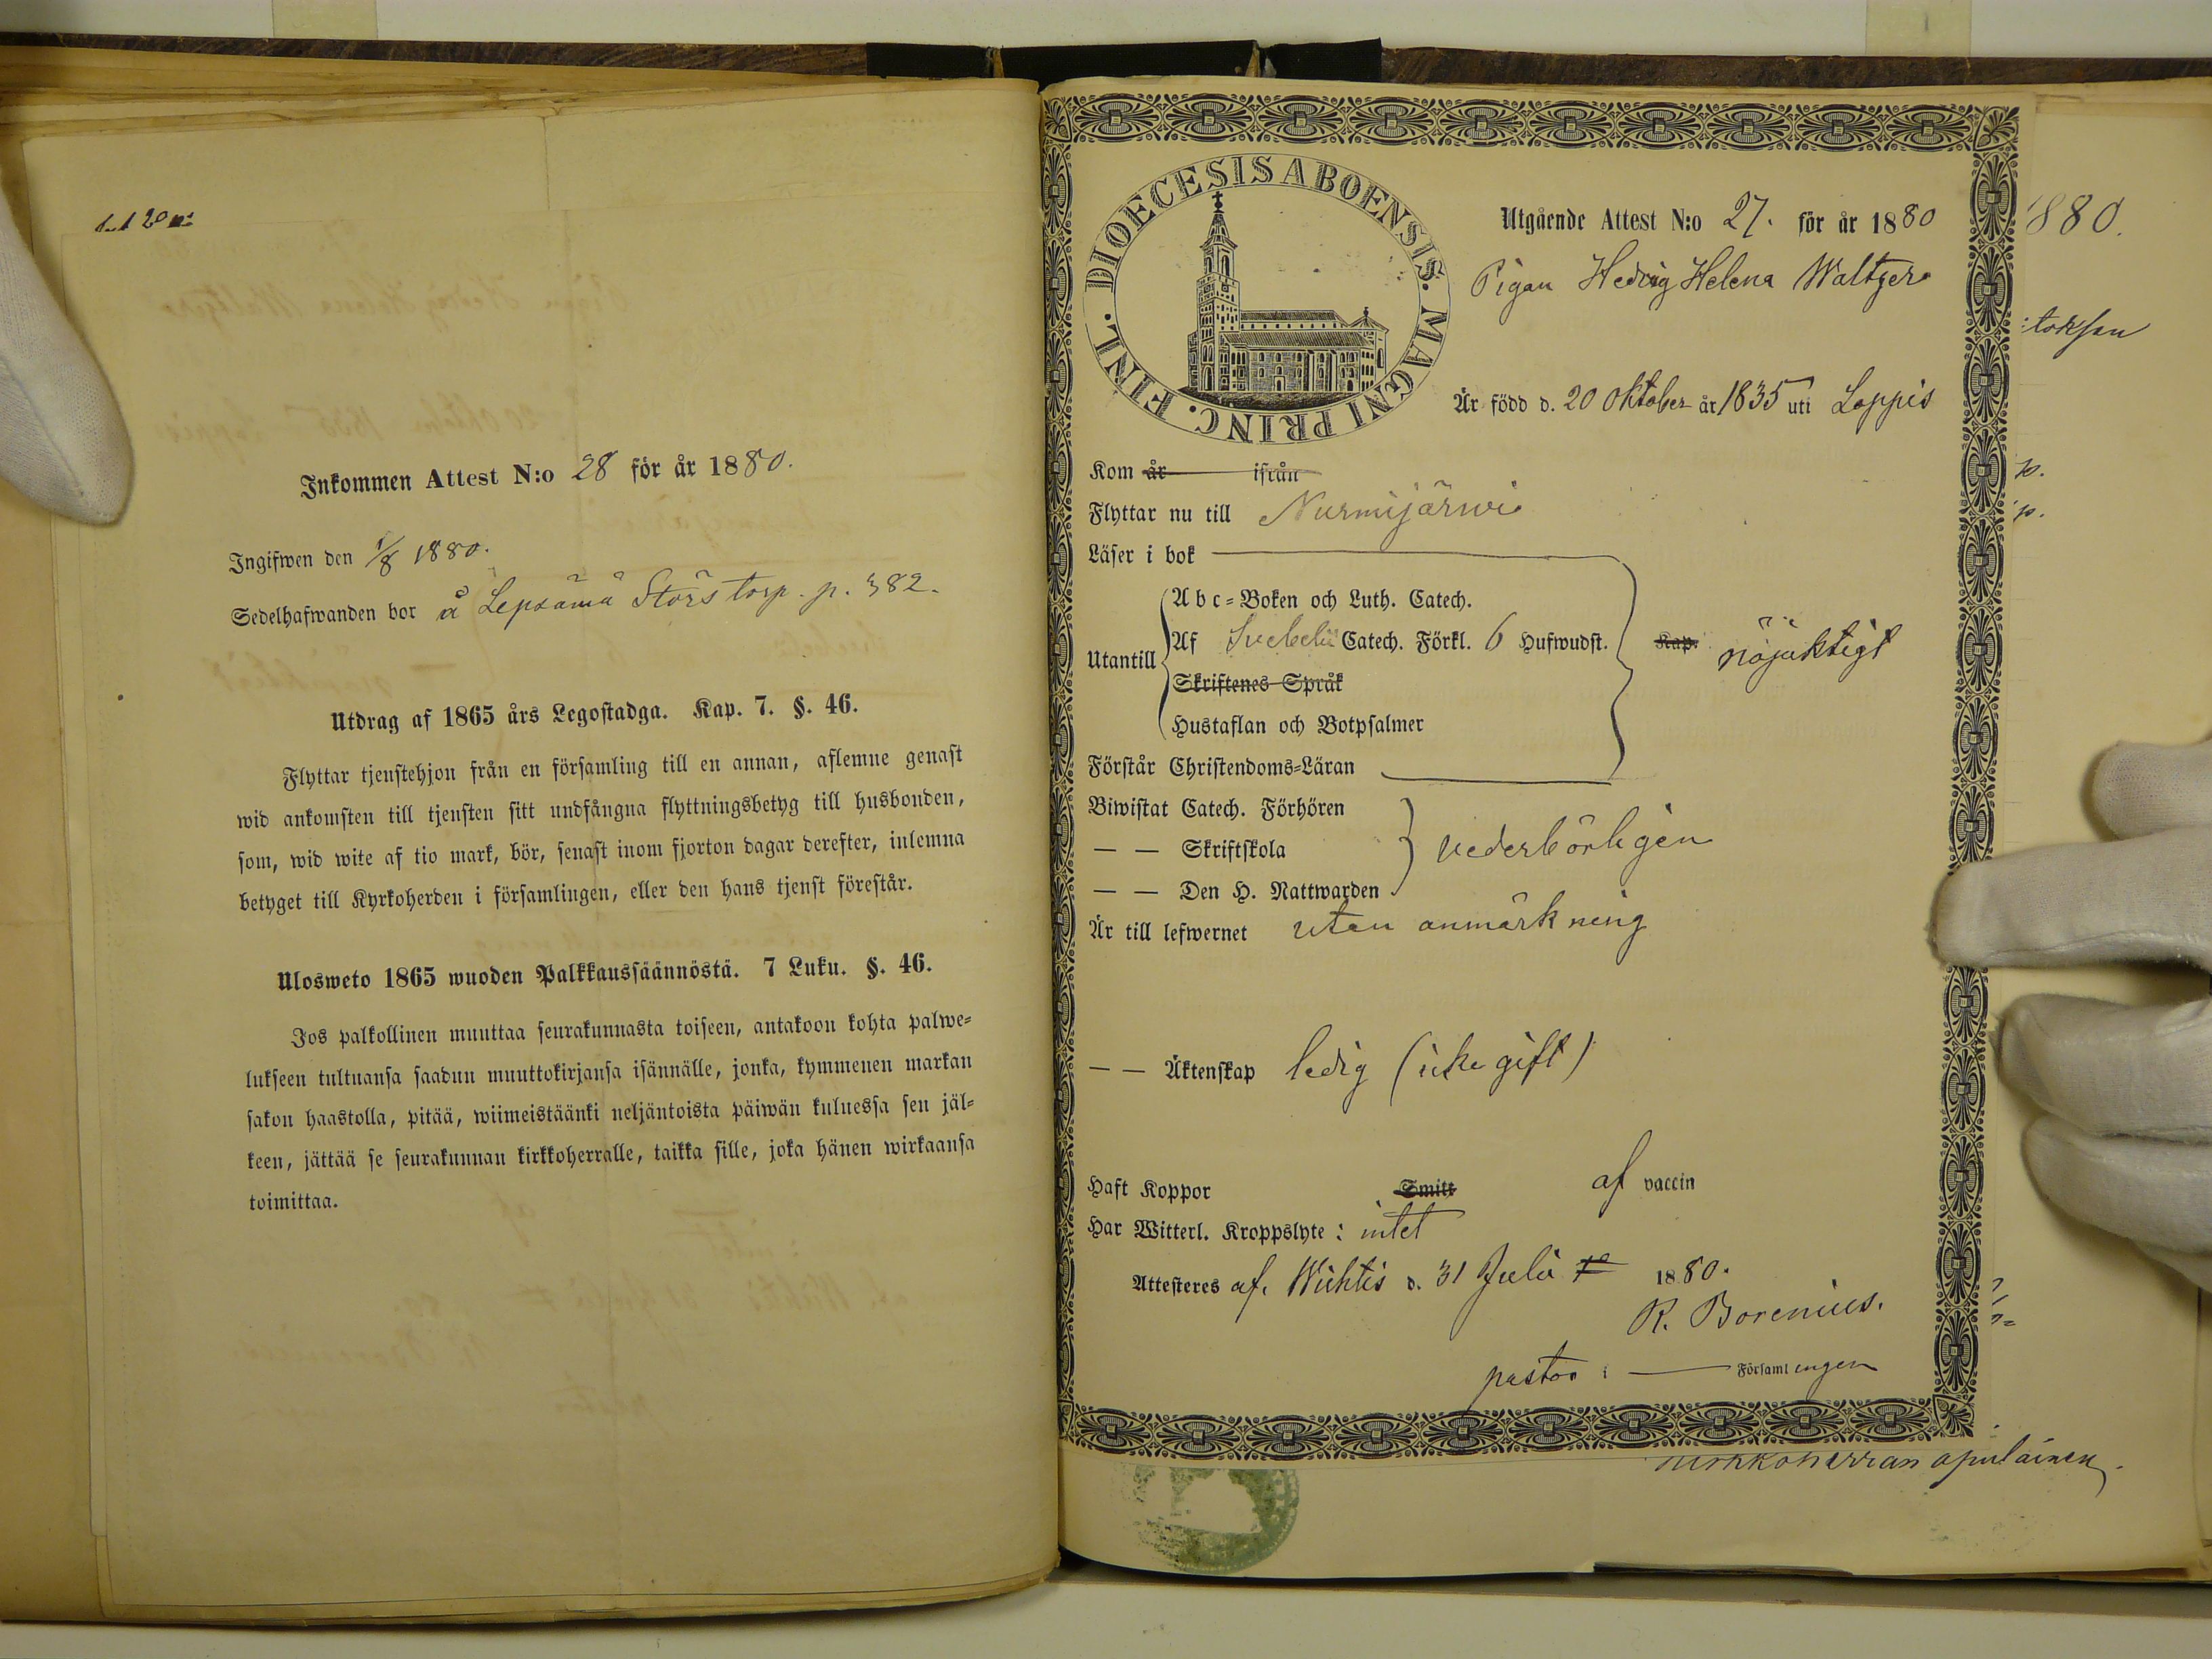 Inkommen Attest N:o 28 för år 1880.
Ingifwen den 1/8 1880.
Sedelhafwanden bor å Lepsämä Störs torp. p. 382.
Utdrag af 1865 års Legostadga. Kap. 7. §. 46.
Flyttar tjenstehjon från en församling till en annan, aflemne genast
wid ankomsten till tjensten sitt undfångna flyttningsbetyg till husbonden,
som, wid wite af tio mark, bör, senast inom fjorton dagar derefter, inlemna
betyget till Kyrkoherden i församlingen, eller den hans tjenst förestår.
Ulosweto 1865 wuoden Palkkaussäännöstä. 7 Luku. §. 46.
Jos palkollinen muuttaa seurakunnasta toiseen, antakoon kohta palwe-
lukseen tultuansa saadun muuttokirjansa isännälle, jonka, kymmenen markan
sakon haastolla, pitää, wiimeistäänki neljäntoista päiwän kuluessa sen jäl-
keen, jättää se seurakunnan kirkkoherralle, taikka sille, joka hänen wirkaansa
toimittaa.
DIOECESIS ABOENSIS. MAGNI PRINC. FINL.
Utgående Attest N:o 27. för år 1880
Pigan Hedvig Helena Waltzer
Är född d. 20 Oktober år 1835 uti Loppis
Kom år ifrån
Flyttar nu till Nurmijärwi
Läser i bok
Utantill
Abc-Boken och Luth. Catech.
Af Svebelii Catech. Förkl. 6 Hufwudst.
Skriftenes Språk
Hustaflan och Botpsalmer
Kap. nöjaktigt
Förstår Christendoms-Läran
Biwistat Catech. Förhören
— — Skriftskola
— — Den H. Nattwarden
vederbörligen
Är till lefwernet utan anmärkning
— — Äktenskap ledig (icke gift)
Haft Koppor Smitt af vaccin
Har Witterl. Kroppslyte: intet
Attesteres af. Wichtis d. 31 Julii 1880.
R. Borenius.
pastor i — Församlingen
880.
toksen
p.
p.
apulainen.